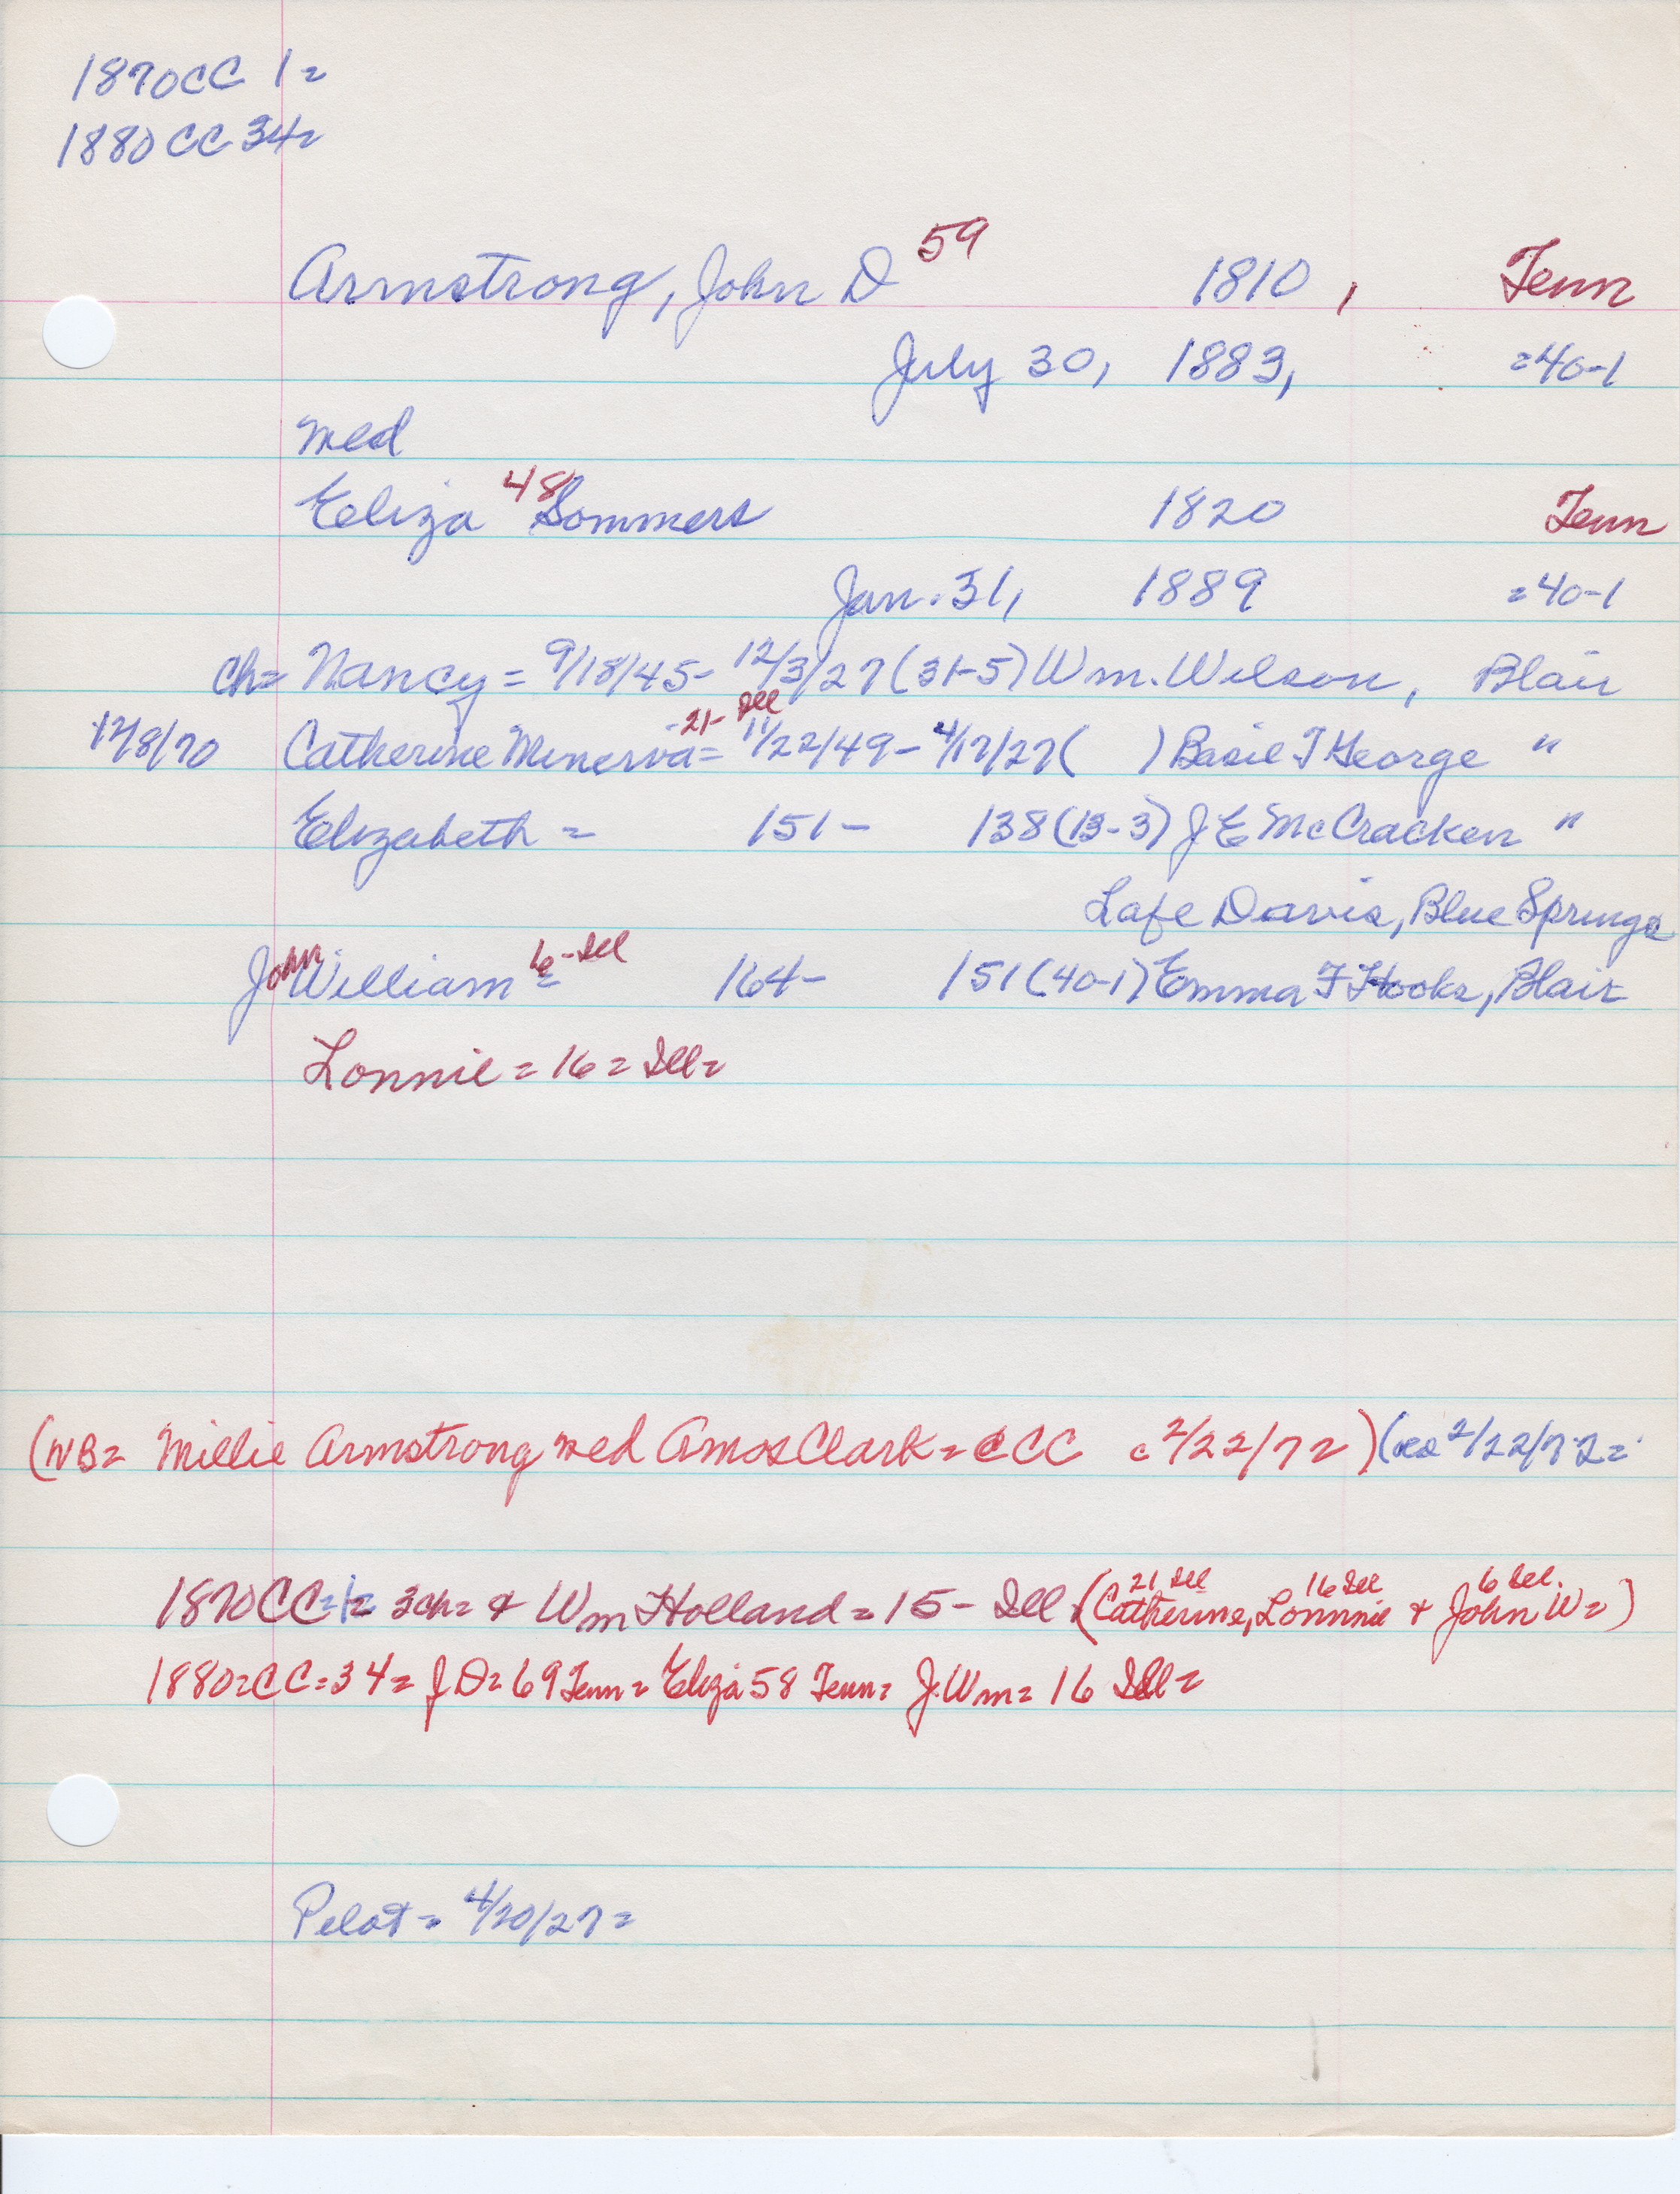 1870CC 1=
1880CC 34=
Armstrong, John D 59 1810, Tenn
July 30, 1883, =40-1
med
Eliza 48 Sommers 1820 Tenn
Jan. 31, 1889 =40-1
ch= Nancy = 9/18/45- 12/3/27 (31-5) Wm. Wilson, Blair
12/8/70 Catherine Minerva -21- Ill = 11/22/49 - 4/17/27 ( ) Basil T George "
Elizabeth = 151- 138 (13-3) J E McCracken "
Lafe Davis, Blue Springs
John William 6-Ill = 164- 151 (40-1) Emma F Hooks, Blair
Lonnie = 16 = Ill=
(NB= Millie Armstrong med Amos Clark = CCC c 2/22/72) ( 2/22/72=
1870CC=1= 3ch= & Wm Holland = 15 - Ill (Catherine 21 Ill, Lonnnie 16 Ill & John W= 6 Ill.)
1880=CC=34= J D= 69 Tenn= Eliza 58 Tenn= J. Wm= 16 Ill=
Pelot = 4/20/27=